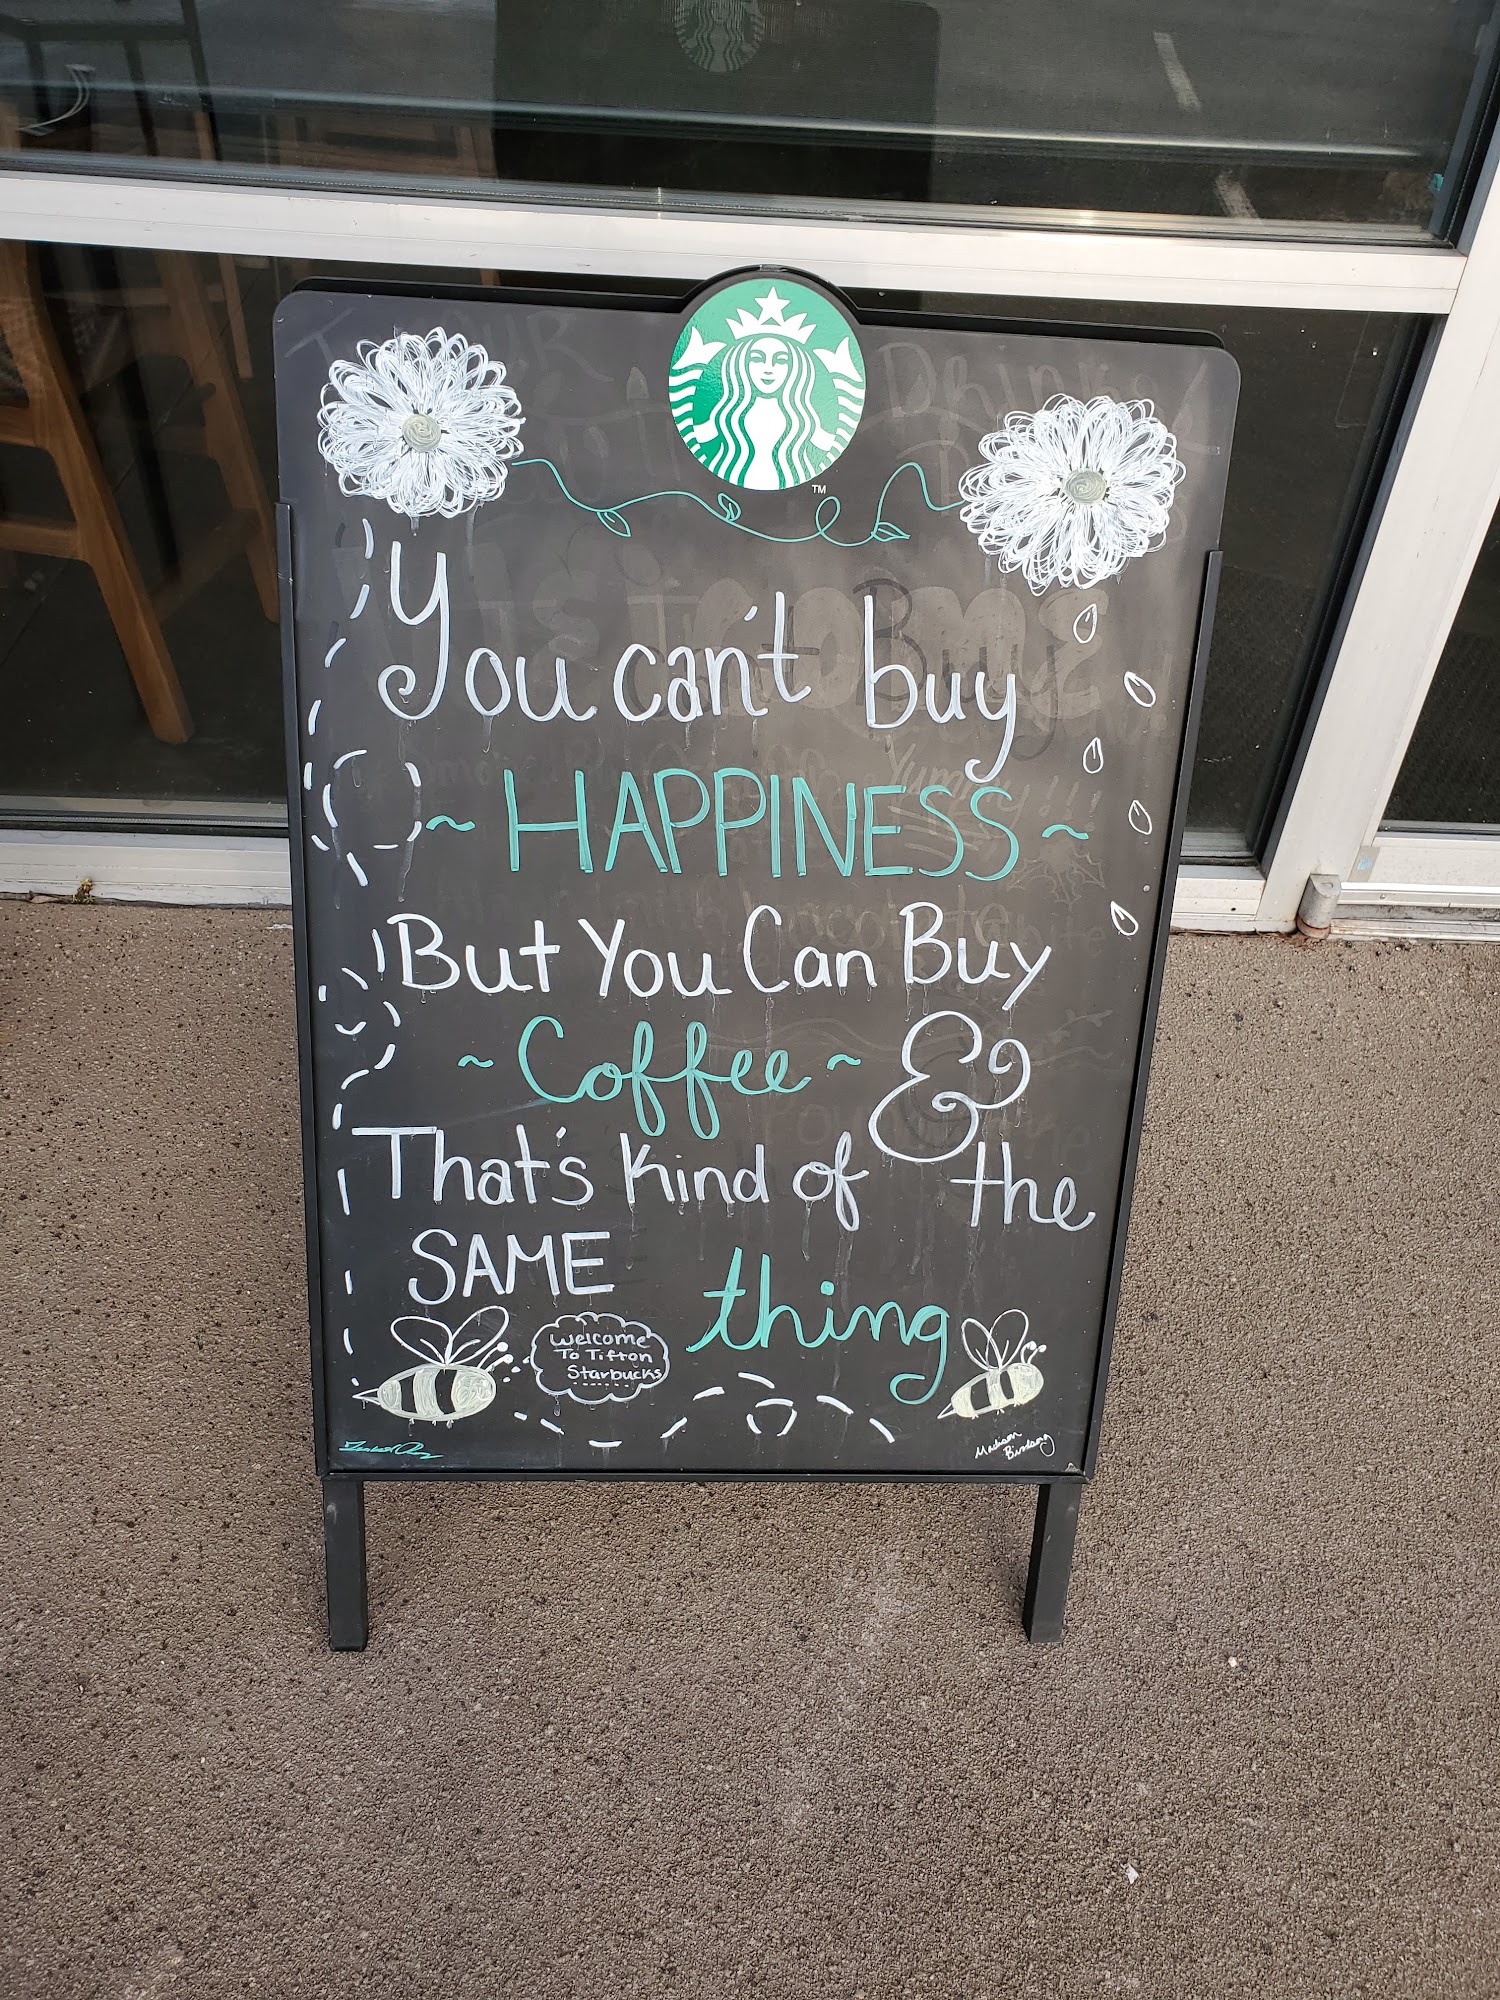 TM
You can't buy
~ HAPPINESS ~
But You Can Buy
~ Coffee ~ &
That's Kind of the
SAME
thing
Welcome
To Tifton
Starbucks
Madison